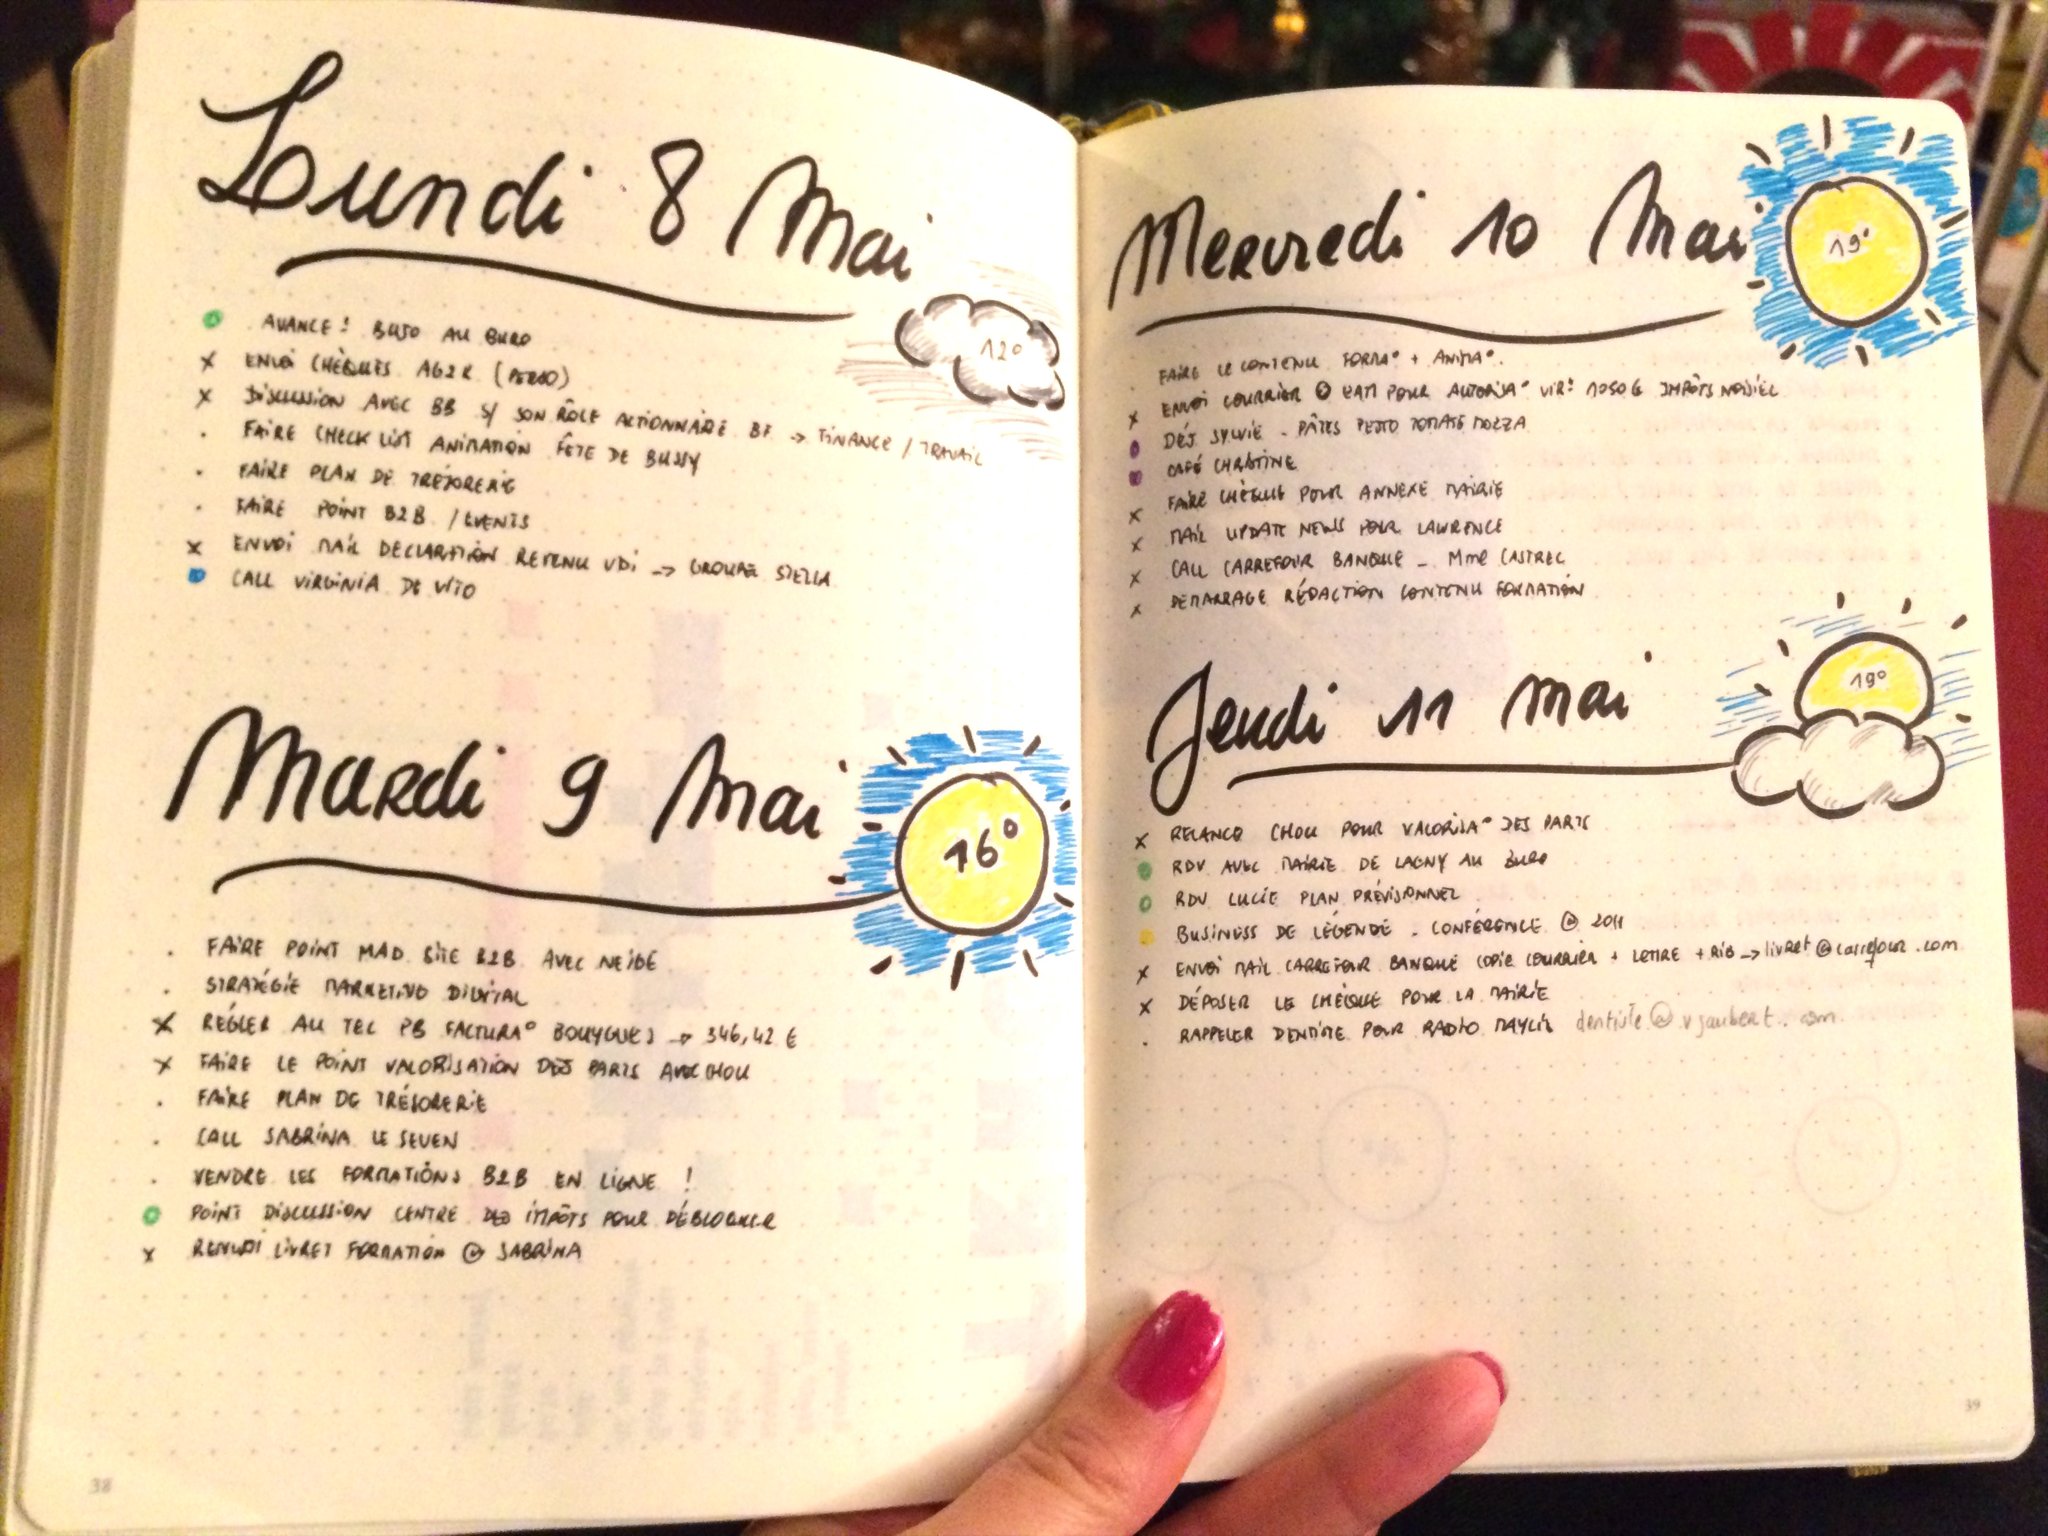 Lundi 8 Mai
12°
AVANCE! BUJO AU BURO
ENVOI CHÈQUES AG2R (PERSO)
DISCUSSION AVEC BB S/ SON RÔLE ACTIONNAIRE BF → FINANCE / TRAVAIL
FAIRE CHECK LIST ANIMATION FÊTE DE BUSSY
FAIRE PLAN DE TRÉSORERIE
FAIRE POINT B2B / EVENTS
ENVOI MAIL DECLARATION REVENU VDI → GROUPE STELLA
CALL VIRGINIA DE VITO
Mardi 9 Mai
16°
FAIRE POINT MAD SITE B2B AVEC NEIDE
STRATÉGIE MARKETING DIGITAL
RÉGLER AU TEL PB FACTURA° BOUYGUES → 346,42 €
FAIRE LE POINT VALORISATION DES PARTS AVEC CHOU
FAIRE PLAN DE TRÉSORERIE
CALL SABRINA LE SEVEN
VENDRE LES FORMATIONS B2B EN LIGNE !
POINT DISCUSSION CENTRE DES IMPÔTS POUR DÉBLOQUER
RENVOI LIVRET FORMATION @ SABRINA
38
Mercredi 10 Mai
19°
FAIRE LE CONTENU FORMA° + ANIMA°.
ENVOI COURRIER POUR AUTORISA° VIR! 1050 € IMPÔTS NOISIEL
DÉJ SYLVIE - PÂTES PESTO TOMATE MOZZA
CAFÉ CHRISTINE
FAIRE CHÈQUE POUR ANNEXE MAIRIE
MAIL UPDATE NEWS POUR LAWRENCE
CALL CARREFOUR BANQUE - Mme CASTREC
DÉMARRAGE RÉDACTION CONTENU FORMATION
Jeudi 11 mai
19°
RELANCE CHOU POUR VALORISA° DES PARTS
RDV AVEC MAIRIE DE LAGNY AU BURO
RDV LUCIE PLAN PRÉVISIONNEL
BUSINESS DE LÉGENDE - CONFÉRENCE @ 2011
ENVOI MAIL CARREFOUR BANQUE COPIE COURRIER + LETTRE + RIB → livret@carrefour.com
DÉPOSER LE CHÈQUE POUR LA MAIRIE
RAPPELER DENTISTE POUR RADIO MAYLIE dentiste@vjaubert.com
39